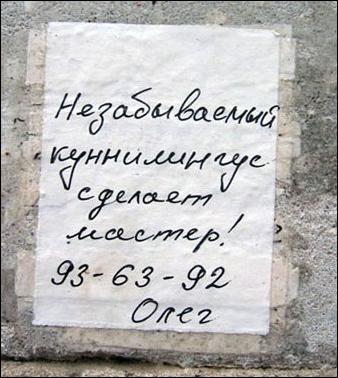 Незабываемый
куннилингус
сделает
мастер!
93-63-92
Олег